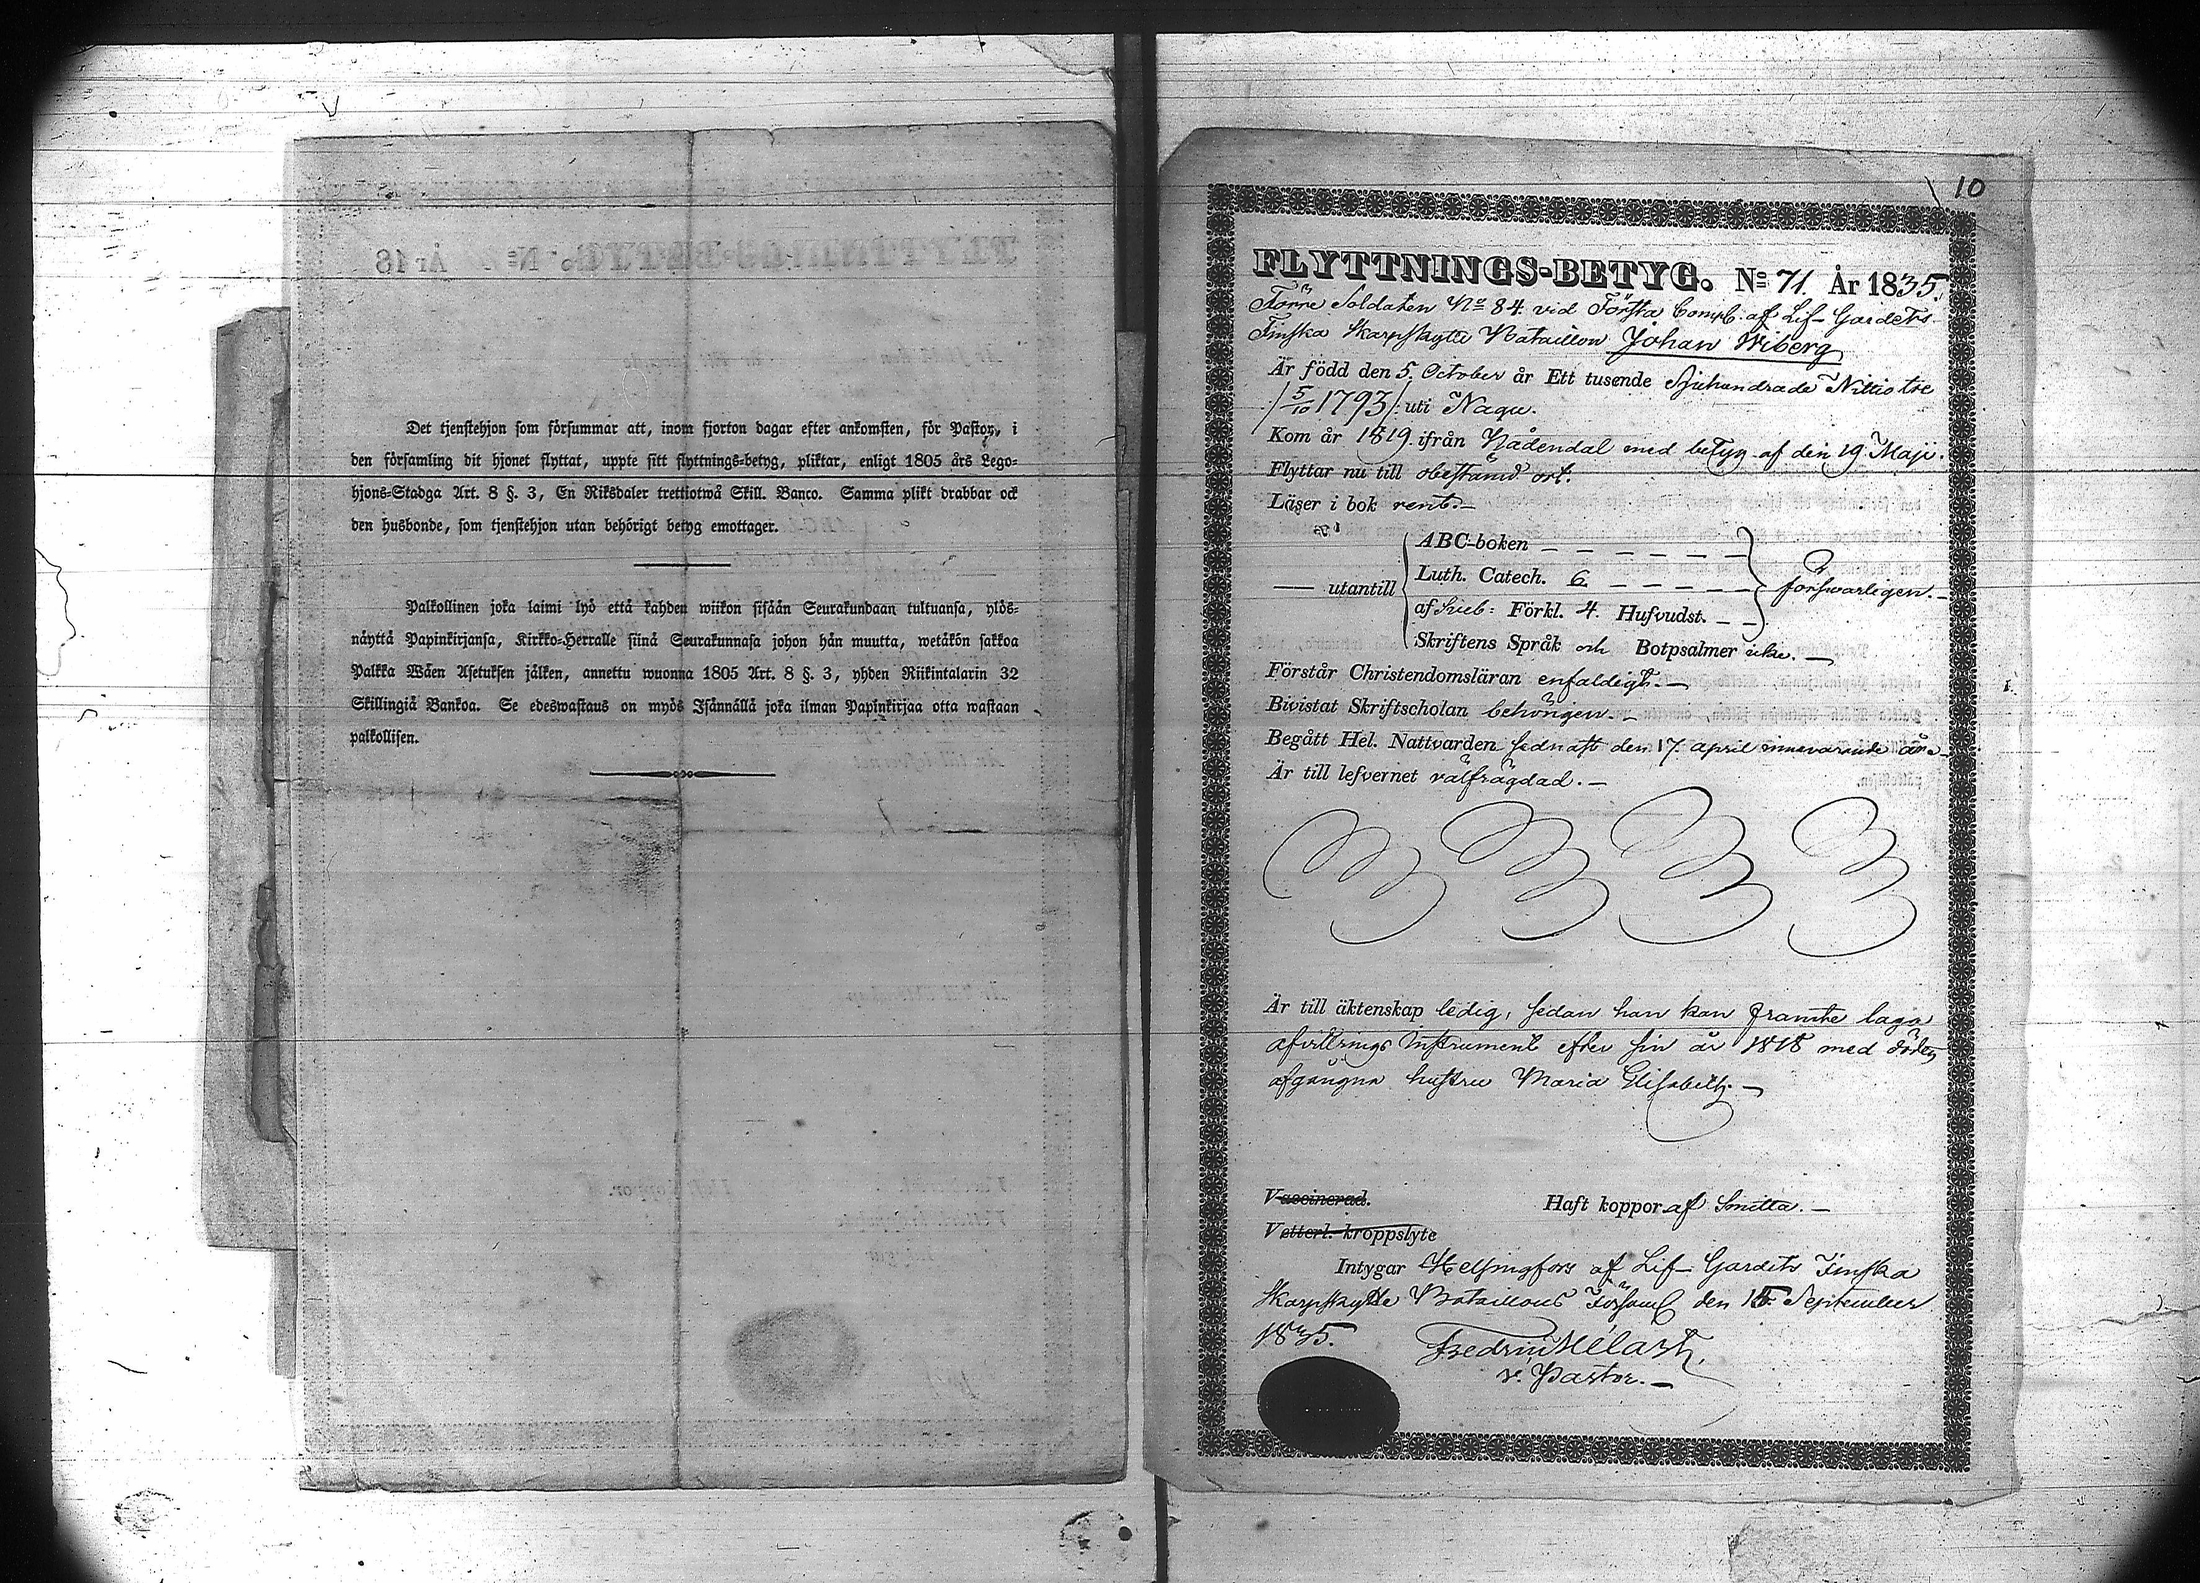 Det tjenstehjon som försummar att, inom fjorton dagar efter ankomsten, för Pastor, i
den församling dit hjonet flyttat, uppte sitt flyttnings-betyg, pliktar, enligt 1805 års Lego-
hjons-Stadga Art. 8 §. 3, En Riksdaler trettiotwå Skill. Banco. Samma plikt drabbar ock
den husbonde, som tjenstehjon utan behörigt betyg emottager.
Palkollinen joka laimi lyö että kahden wiikon sisään Seurakundaan tultuansa, ylös-
näyttä Papinkirjansa, Kirkko-Herralle siinä Seurakunnasa johon hän muutta, wetäkön sakkoa
Palkka Wäen Asetuksen jälken, annettu wuonna 1805 Art. 8 §. 3, yhden Riikintalarin 32
Skillingiä Bankoa. Se edeswastaus on myös Isännällä joka ilman Papinkirjaa otta wastaan
palkollisen.
10
FLYTTNINGS-BETYG. No 71 År 1835.
Förre Soldaten No 84. vid Första Comp. af Lif-Gardets
Finska Skarpskytte Bataillon Johan Wiberg
Är född den 5. October år Ett tusende Sjuhundrade Nittiotre
/: 5/10 1793 :/ uti Nagu.
Kom år 1819. ifrån Nådendal med betyg af den 19 Maji.
Flyttar nu till obestämd ort.
Läser i bok rent.—
— utantill
ABC-boken — — — — — —
Luth. Catech. 6. — — — —
af Sveb: Förkl. 4. Hufvudst. — —
försvarligen.—
Skriftens Språk och Botpsalmer icke.—
Förstår Christendomsläran enfaldigt.—
Bivistat Skriftscholan behörigen.—
Begått Hel. Nattvarden sednast den 17. april innevarande år.—
Är till lefvernet välfrägdad.—
Är till äktenskap ledig, sedan han kan framte laga
afvittrings Instrument efter sin år 1818 med döden
afgångna hustru Maria Elisabeth.—
Vaccinerad. Haft koppor af Smitta.—
Vetterl. kroppslyte
Intygar Helsingfors af Lif-Gardets Finska
Skarpskytte Bataillons Församl den 15. September
1835.
Fredric
v. Pastor.—